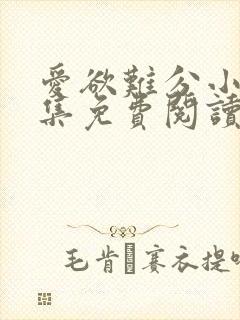 愛欲難分小
集免費閱讀
毛肯賽衣提